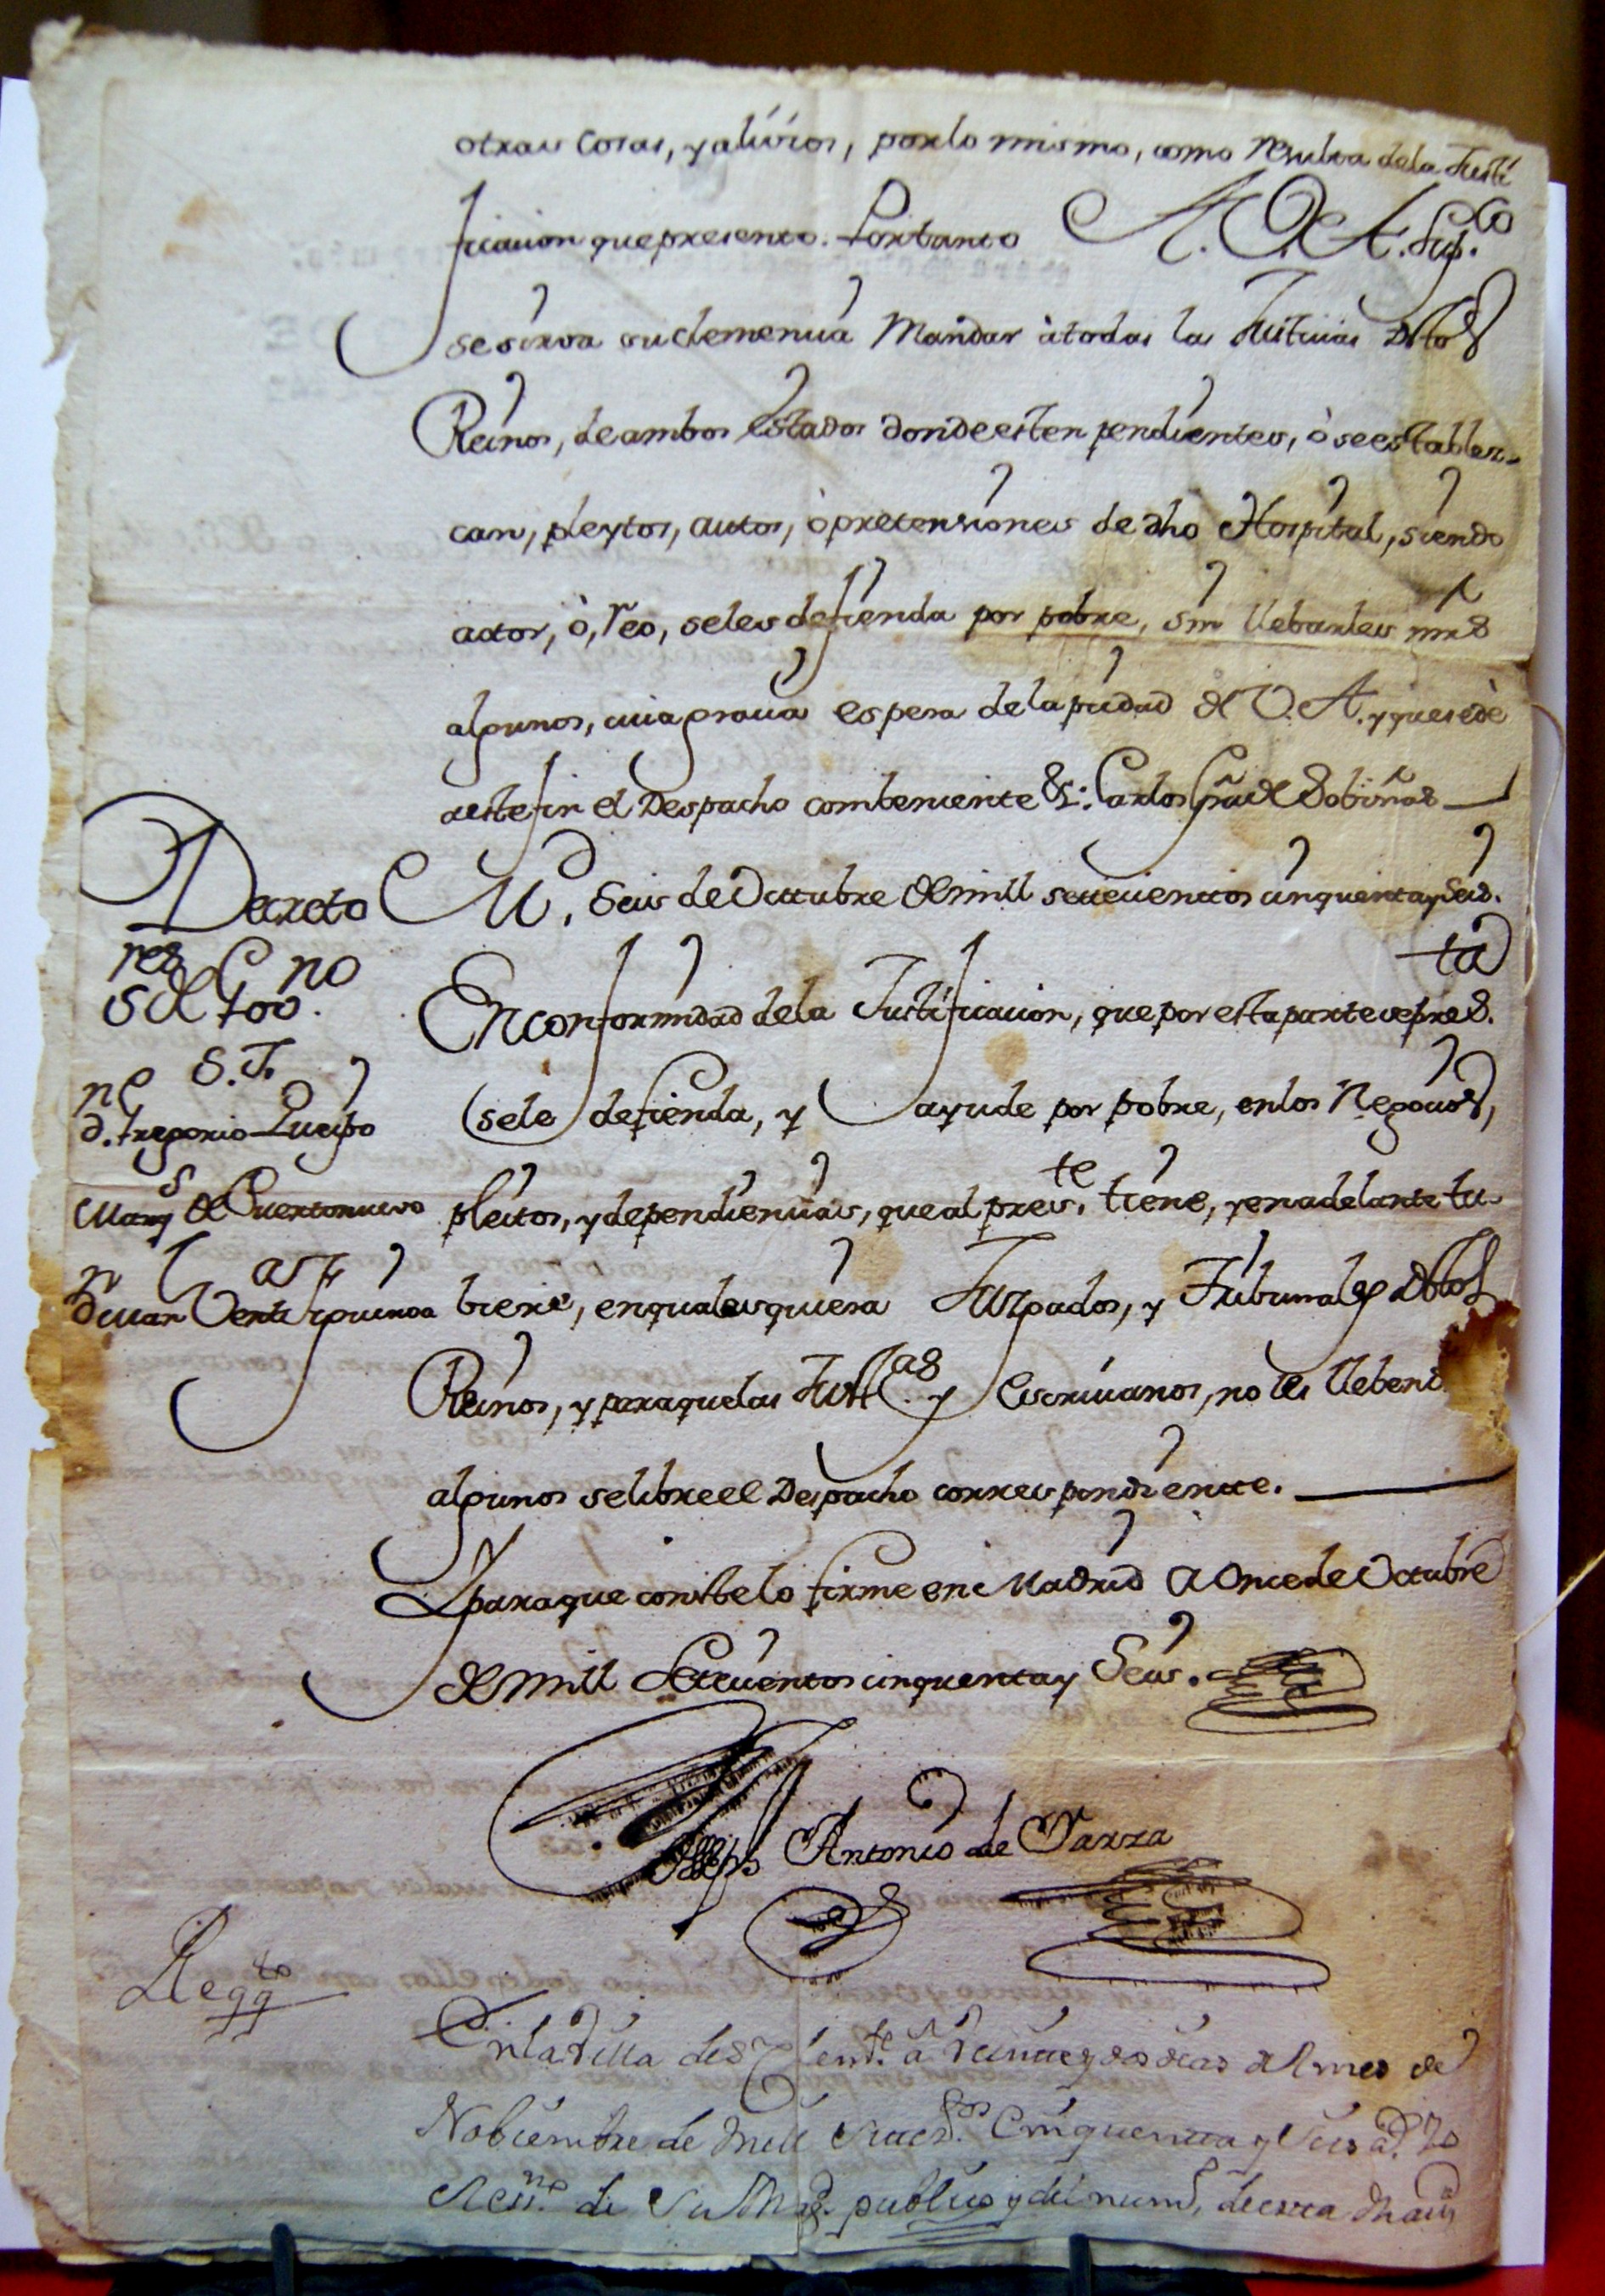 otras cosas, y alivios, por lo mismo, como resulta de la Justi
ficacion que presento. Por tanto A. V. A. Sup.co
se sirva su clemencia Mandar à todas las Justicias
Reinos, de ambos estados donde esten pendientes, ò se establez-
can, pleytos, autos, ò pretensiones de dho Hospital, siendo
actor, ò, reo, se les defienda por pobre, sin llebarles mrs
algunos, cuia gracia espera de la piedad de V. A. y que se dè
a este fin el Despacho combeniente &: Carlos
Decreto
M. Seis de Octtubre de mill settecienttos cinquenta y Seis.
En conformidad de la Justificacion, que por esta parte se pres.ta
se le defienda, y ayude por pobre, en los Negocios,
pleitos, y dependiencias, que al pres.te tiene, y en adelante tu-
biere, en qualesquiera Juzgados, y Tribunales
Reinos, y para que las Justt.as y Escrivanos, no les lleben
algunos se libre el Despacho correspondiente.
S.res
S. T.
D. Gregorio Queipo
Marq.s de Puertonuevo
D. Juan
Y para que conste lo firme en Madrid a Once de Octubre
de mill Setecientos cinquenta y Seis.
Joseph Antonio de Yarza
En la Villa de a Veintte y dos dias del mes de
Nobiembre de mill Settez.tos Cinquentta y Seis
Ess.no de Su Mag.d publico y del num.o de esta